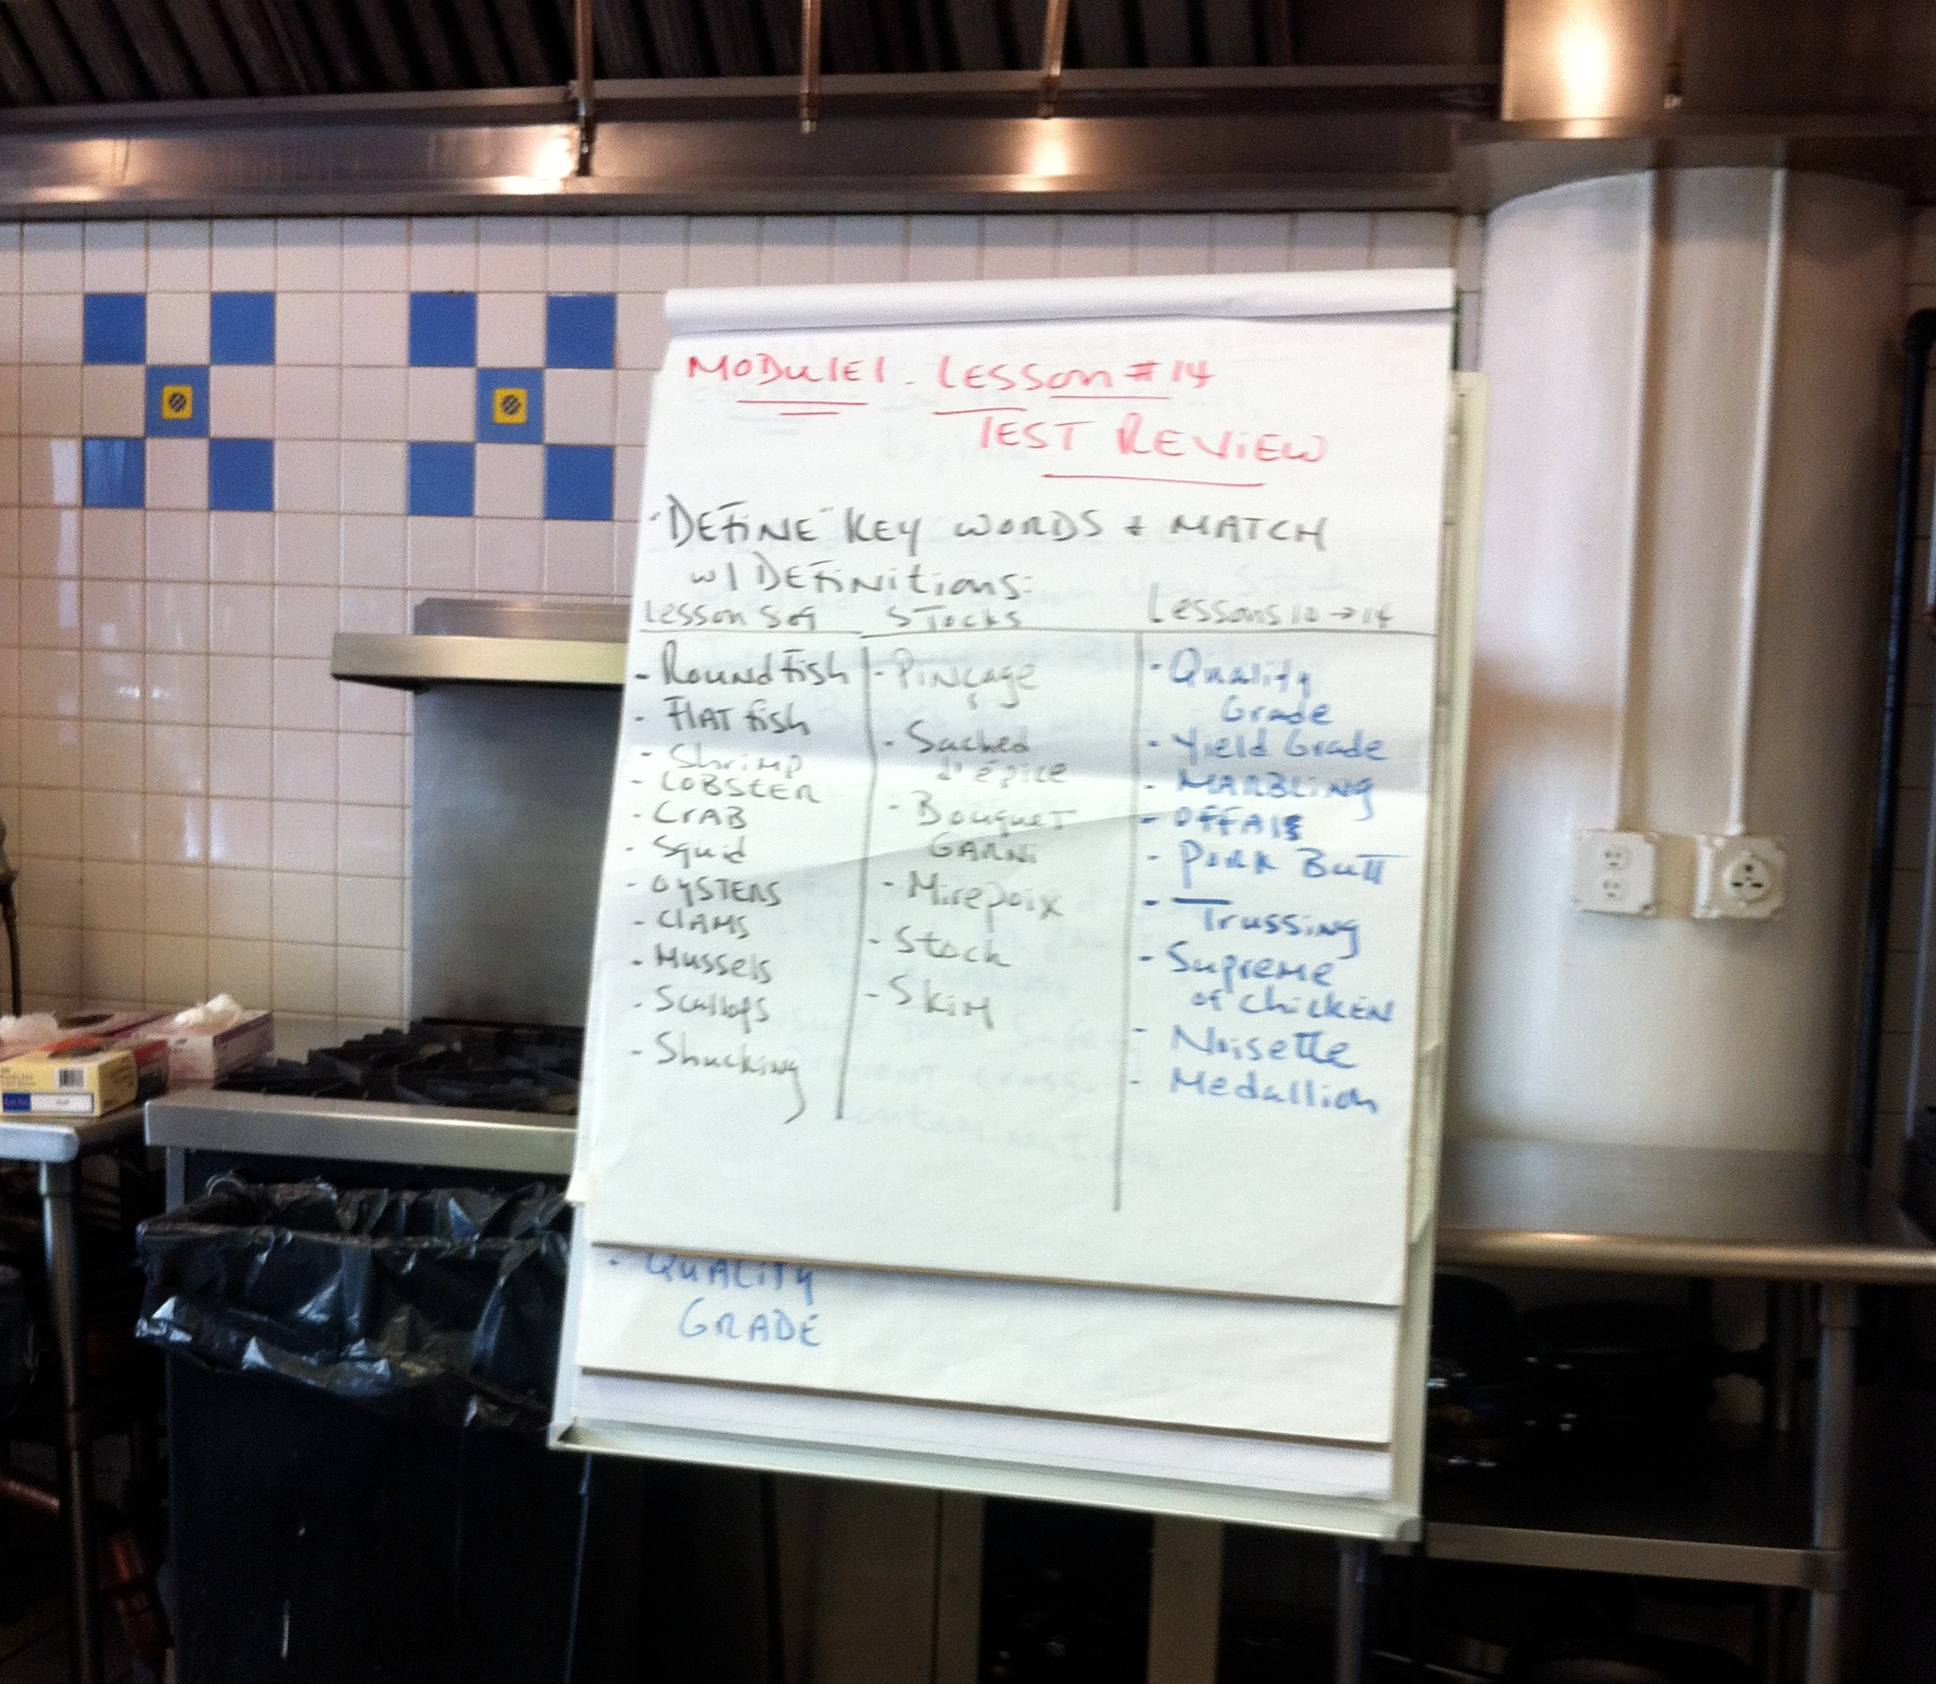 MODULE 1. LESSON # 14
TEST REVIEW
"DEFINE" KEY WORDS + MATCH
W/ DEFINITIONS:
Lesson 8+9
- Round fish
- FLAT fish
- Shrimp
- LOBSTER
- CrAB
- Squid
- OYSTERS
- CLAMS
- Mussels
- Scallops
- Shucking
STOCKS
- Pinçage
- Sached
d'épice
- Bouquet
GARNi
- Mirepoix
- Stock
- SKiM
Lessons 10 → 14
- Quality
Grade
- Yield Grade
- MARBLiNG
- OFFAlS
- PORK BUTT
- Trussing
- Supreme
of chicKEN
- Noisette
- Medallion
- QUALITY
GRADE